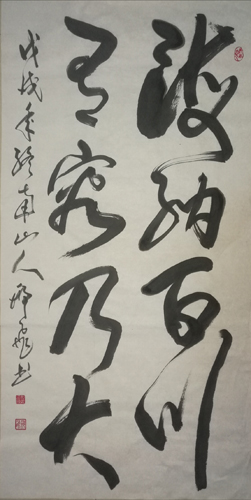 海纳百川
有容乃大
戊戌年终南山人